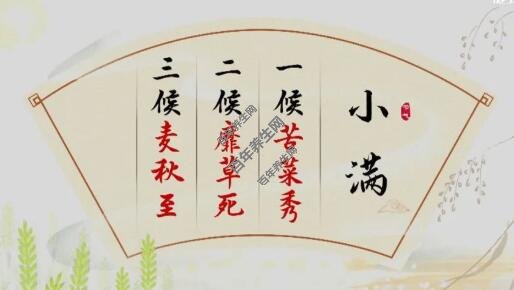 小满
一候苦菜秀
二候靡草死
三候麦秋至
百年养生网
百年养生网